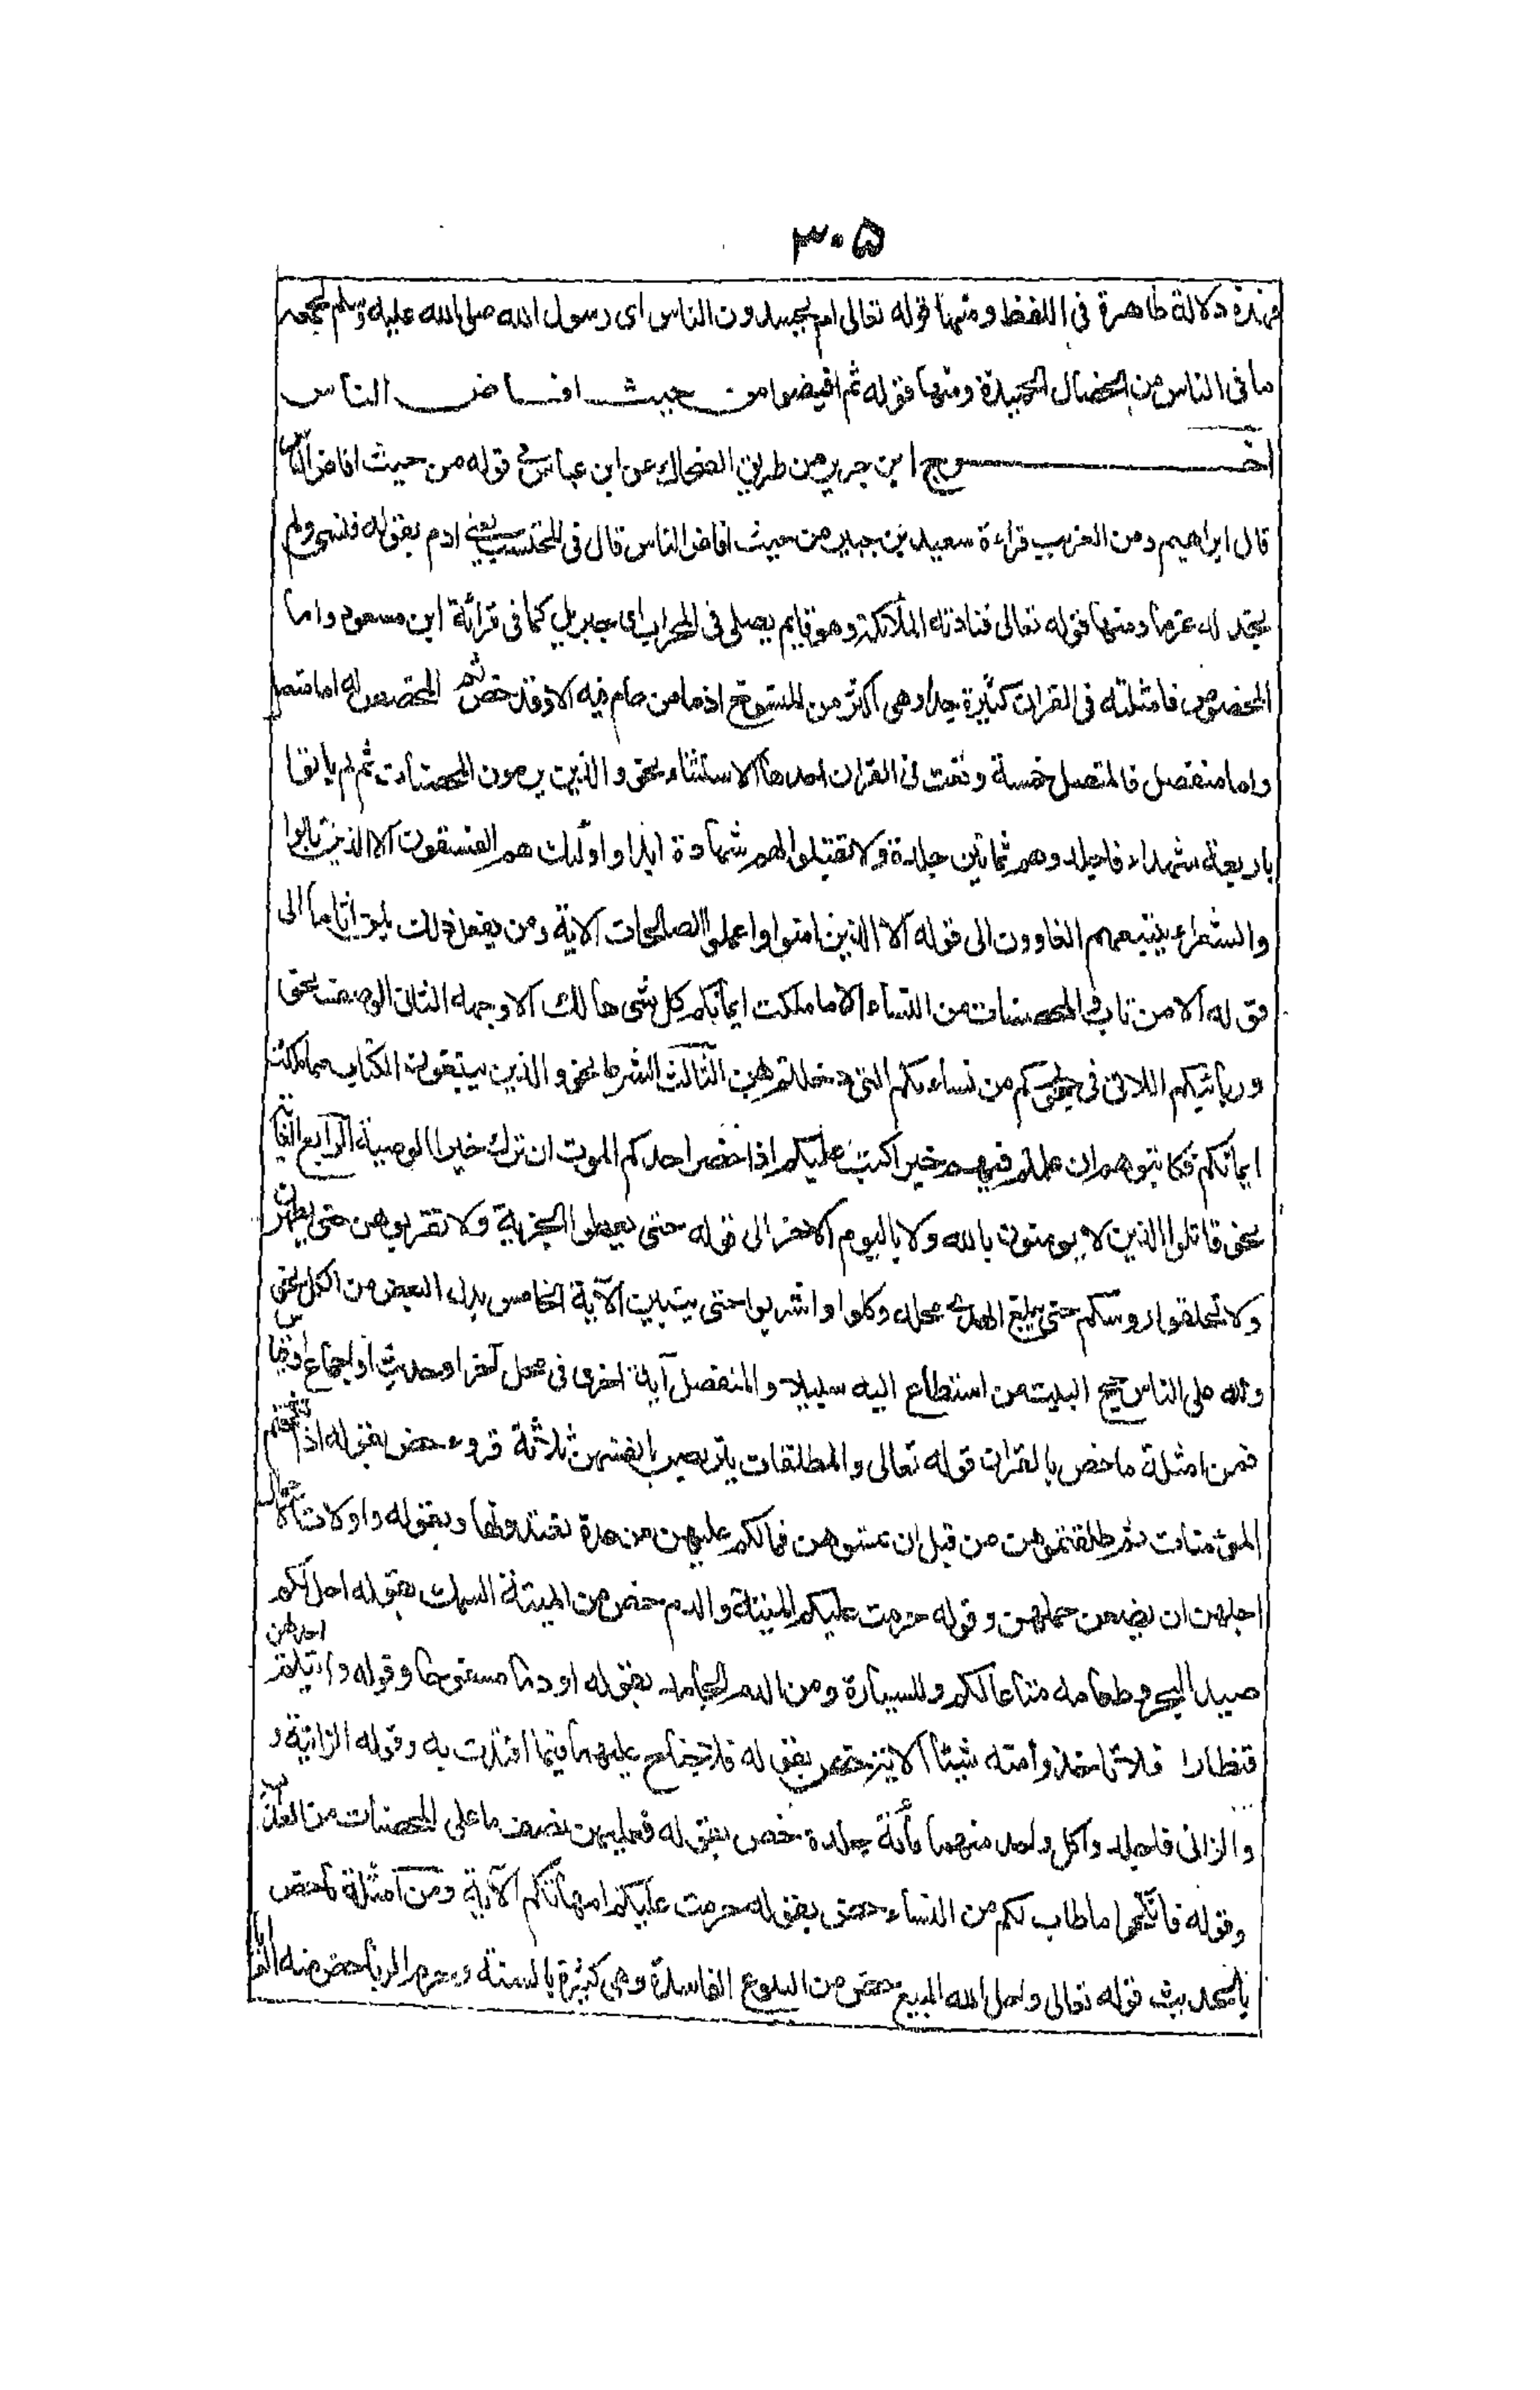 ٣٠۵
فهذه دلالة ظاهرة فى اللفظ ومنها قوله تعالى ام يحسدون الناس اى رسول الله صلى الله عليه وسلم لجمعه
ما فى الناس من الخصال الحميدة ومنها قوله ثم افيضوا من حيث افاض الناس
اخرج ابن جرير من طريق الضحاك عن ابن عباس فى قوله من حيث افاض الناس
قال ابراهيم ومن الغريب قراءة سعيد بن جبير من حيث افاض الناس قال فى المحتسب يعنى ادم بقوله فنسى ولم
يجد له عزما ومنها قوله تعالى فنادته الملائكة وهو قايم يصلى فى المحراب اى جبريل كما فى قرائة ابن مسعود واما
المخصوص فامثلته فى القران كثيرة جدا وهى اكثر من المنسوخ اذ ما من عام فيه الا وقد خص ثم المخصص له اما متصل
واما منفصل فالمتصل خمسة وقعت فى القران احدها الاستثناء نحو والذين يرمون المحصنات ثم لم ياتوا
باربعة شهداء فاجلدوهم ثمانين جلدة ولا تقبلوا لهم شهادة ابدا واولئك هم الفسقون الا الذين تابوا
والشعراء يتبعهم الغاوون الى قوله الا الذين امنوا واعملوا الصالحات الاية ومن يفعل ذلك يلق اثاما الى
قوله الا من تاب والمحصنات من النساء الا ما ملكت ايمانكم كل شى هالك الا وجهه الثانى الوصف نحو
وربائبكم اللاتى فى حجوركم من نساءكم التى دخلتم بهن الثالث الشرط نحو والذين يبتغون الكتاب مما ملكت
ايمانكم فكاتبوهم ان علمتم فيهم خيرا كتب عليكم اذا حضر احدكم الموت ان ترك خيرا الوصية الرابع الغاية
نحو قاتلوا الذين لا يومنون بالله ولا باليوم الاخر الى قوله حتى يعطوا الجزية ولا تقربوهن حتى يطهرن
ولا تحلقوا روسكم حتى يبلغ الهدى محله وكلوا واشربوا حتى يتبين الآية الخامس بدل البعض من الكل نحو
ولله على الناس حج البيت من استطاع اليه سبيلا والمنفصل آية اخرى فى محل آخر او حديث او اجماع او قياس
فمن امثلة ما خص بالقران قوله تعالى والمطلقات يتربصن بانفسهن ثلاثة قروء خص بقوله اذا نكحتم
المؤمنات ثم طلقتموهن من قبل ان تمسوهن فمالكم عليهن من عدة تعتدونها وبقوله واولات الاحمال
اجلهن ان يضعن حملهن وقوله حرمت عليكم الميتة والدم خص من الميتة السمك بقوله احل لكم
صيد البحر وطعامه متاعا لكم وللسيارة ومن الدم الجامد بقوله او دما مسفوحا وقوله واتيتم احداهن
قنطارا فلا تاخذوا منه شيئا الاية خص بقوله فلا جناح عليهما فيما افتدت به وقوله الزانية و
والزانى فاجلدوا كل واحد منهما مأئة جلدة خص بقوله فعليهن نصف ما على المحصنات من العذاب
وقوله فانكحوا ما طاب لكم من النساء خص بقوله حرمت عليكم امهاتكم الآية ومن امثلة ما خص
بالحديث قوله تعالى واحل الله البيع خص من البيوع الفاسدة وهى كثيرة بالسنة وحرم الربا خص منه